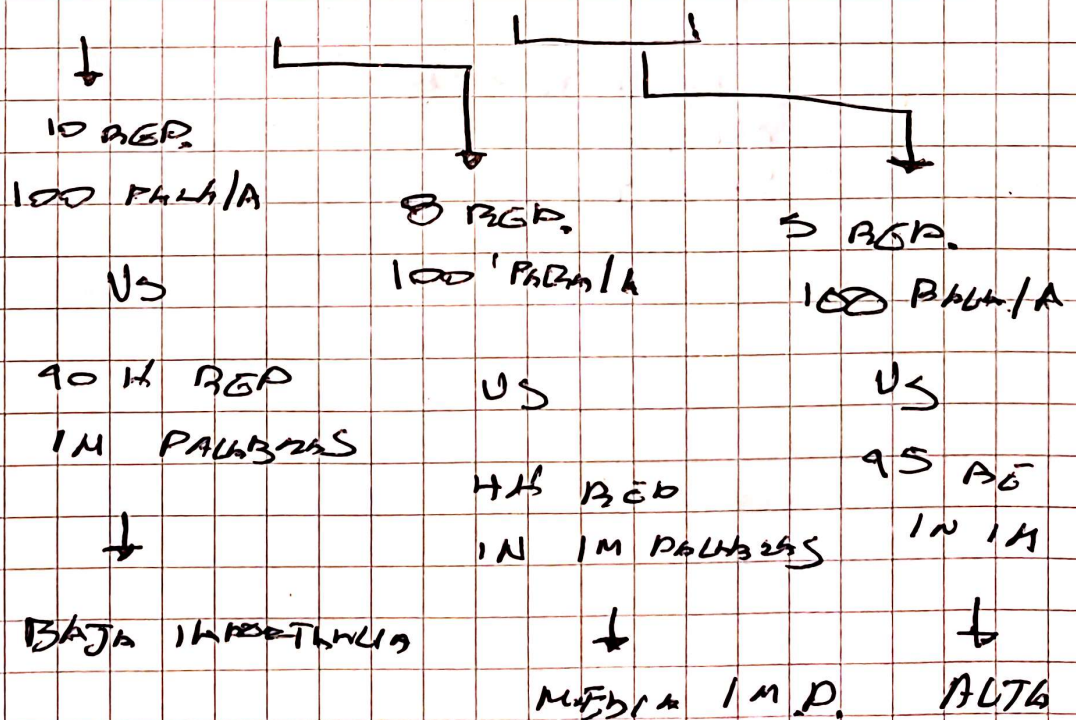 10 REP.
100 PALA/A
VS
90 K REP
1M PALABRAS
BAJA IMPORTANCIA
8 REP.
100 PALA/A
VS
4K REP
IN 1M PALABRAS
MEDIA IM.P.
5 REP.
100 PALA./A
VS
95 RE
IN 1M
ALTA